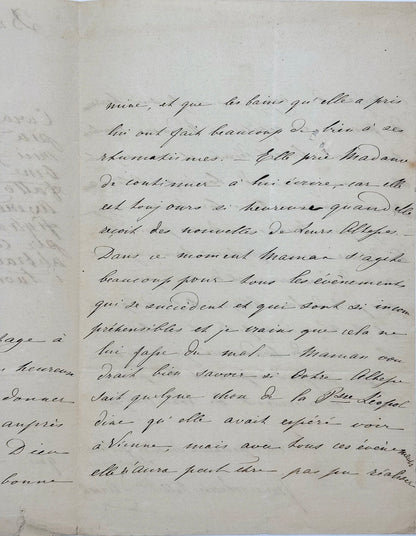 mine, et que les bains qu'elle a pris
lui ont fait beaucoup de bien à ses
rhumatismes. – Elle prie Madame
de continuer à lui écrire, car elle
est toujours si heureuse quand elle
reçoit des nouvelles de Leurs Altesses. –
Dans ce moment Maman s'agite
beaucoup pour tous les événements
qui se succèdent et que sont si incom
préhensibles et je crains que cela ne
lui fasse du mal. – Maman vou
drait bien savoir si Votre Altesse
sait quelque chose de la Psse Léopol
dine qu'elle avait espéré voir
à Vienne, mais avec tous ces événements
elle n'aura peut être pas pu réaliser
tage à
heureuse
donner
auprès
Dieu
bonne